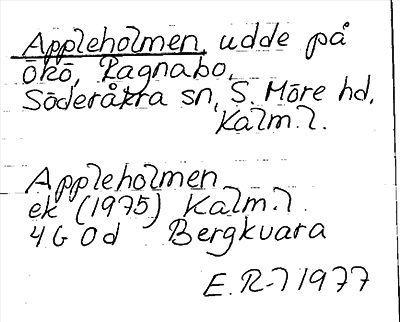 Appleholmen, udde på
Ökö, Ragnabo,
Söderåkra sn, S. Möre hd,
Kalm.l.
Appleholmen
ek (1975) Kalm.l.
4G 0d Bergkvara
E.R-l 1977